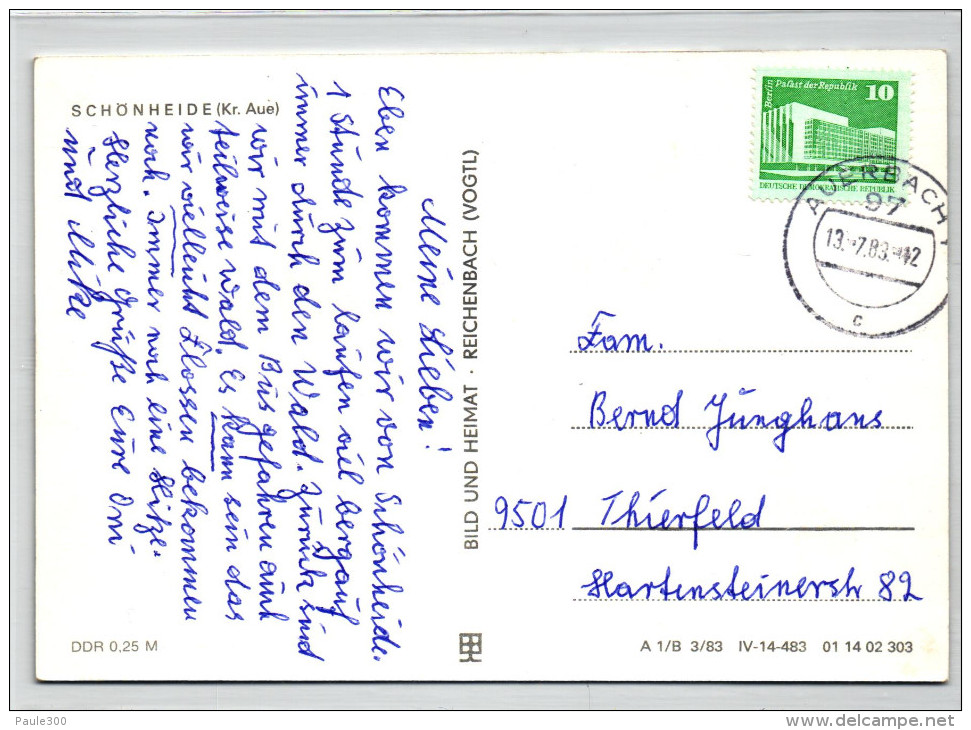 SCHÖNHEIDE (Kr. Aue)
Meine Lieben!
Eben kommen wir von Schönheide.
1 Stunde zum laufen viel bergauf
immer durch den Wald. Zurück sind
wir mit dem Bus gefahren auch
teilweise Wald. Es kann sein das
wir vielleicht Flossen bekommen
noch. Immer noch eine Hitze.
Herzliche Grüße Eure Omi
und Mike
BILD UND HEIMAT · REICHENBACH (VOGTL)
Berlin Palast der Republik 10
DEUTSCHE DEMOKRATISCHE REPUBLIK
AUERBACH 1
97
13.-7.83.-12
c
Fam.
Bernd Junghans
9501 Thierfeld
Hartensteinerstr 82
DDR 0,25 M
A 1/B 3/83 IV-14-483 01 14 02 303
Paule300
www.delcampe.net